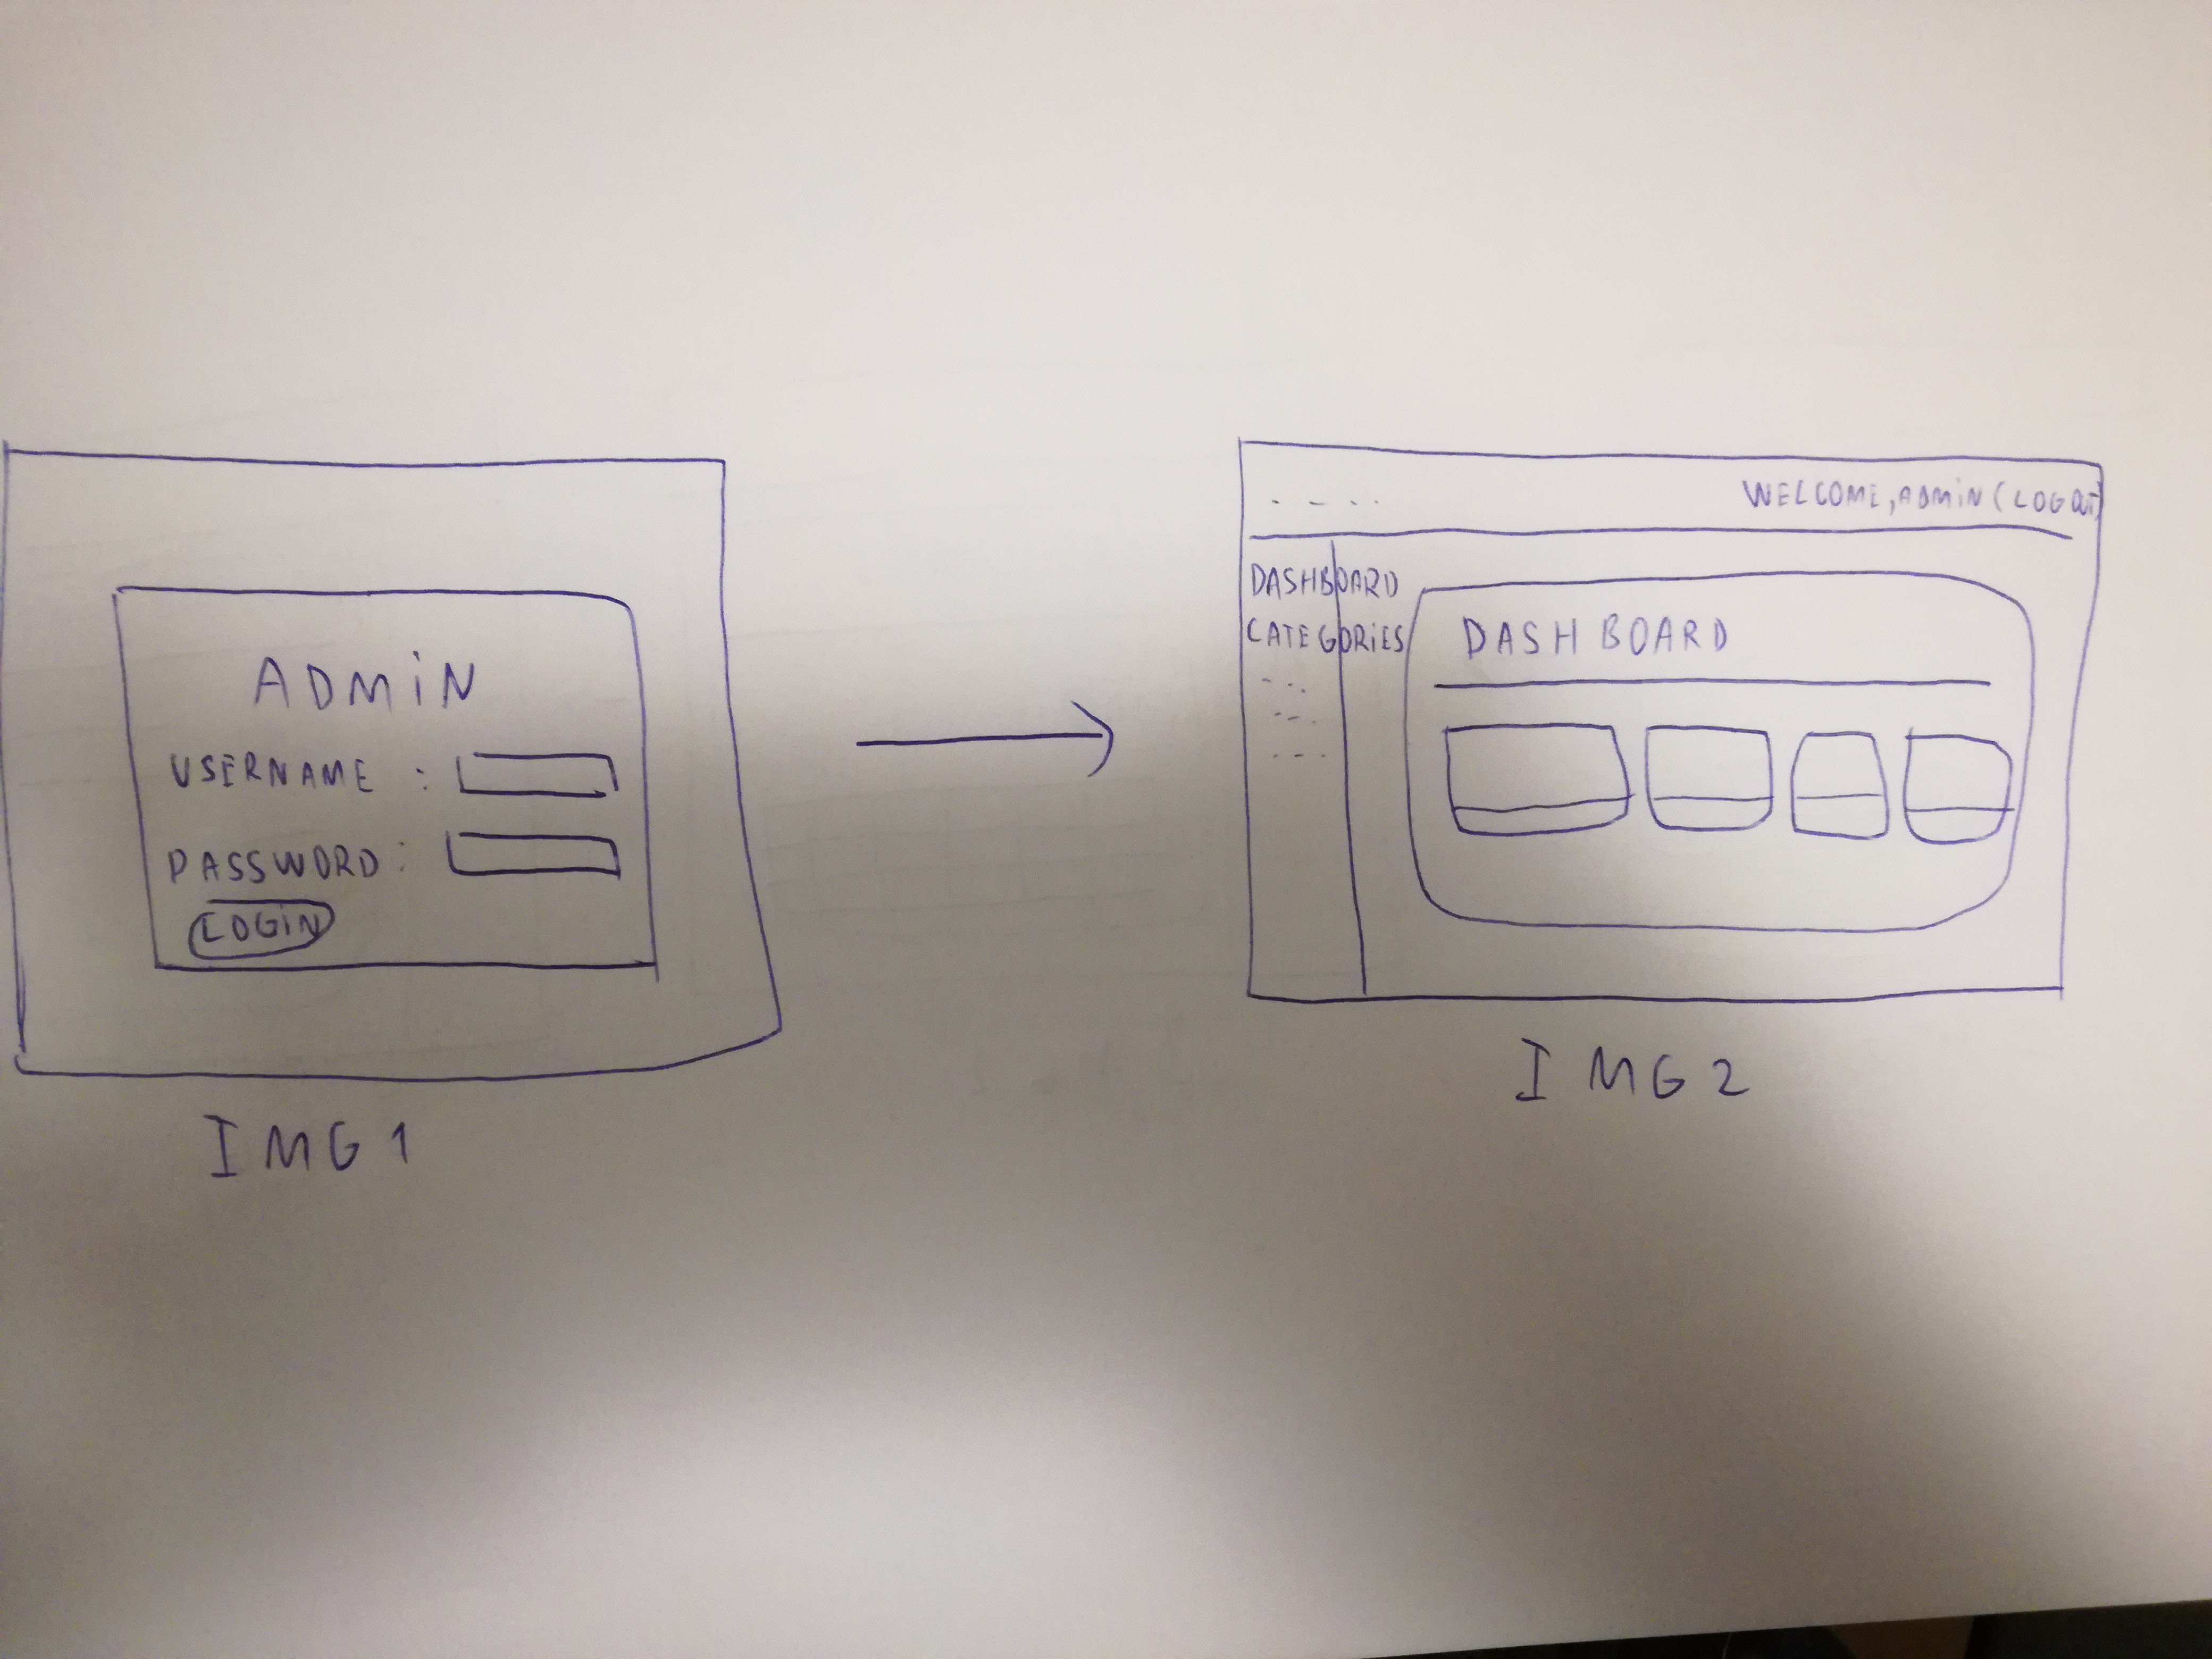 ADMIN
USERNAME :
PASSWORD:
LOGIN
IMG1
WELCOME, ADMIN (LOGOUT)
DASHBOARD
CATEGORIES
DASHBOARD
IMG2